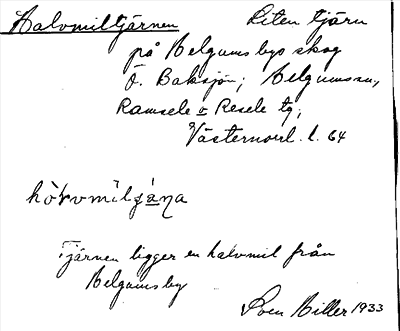 Halvmiltjärnen Liten tjärn
på Belgums bys skog
Ö. Baksjön; Belgumsån,
Ramsele o Resele tg;
Västernorrl. l. 64
Tjärnen ligger en halvmil från
Belgums by
Sven Biller 1933